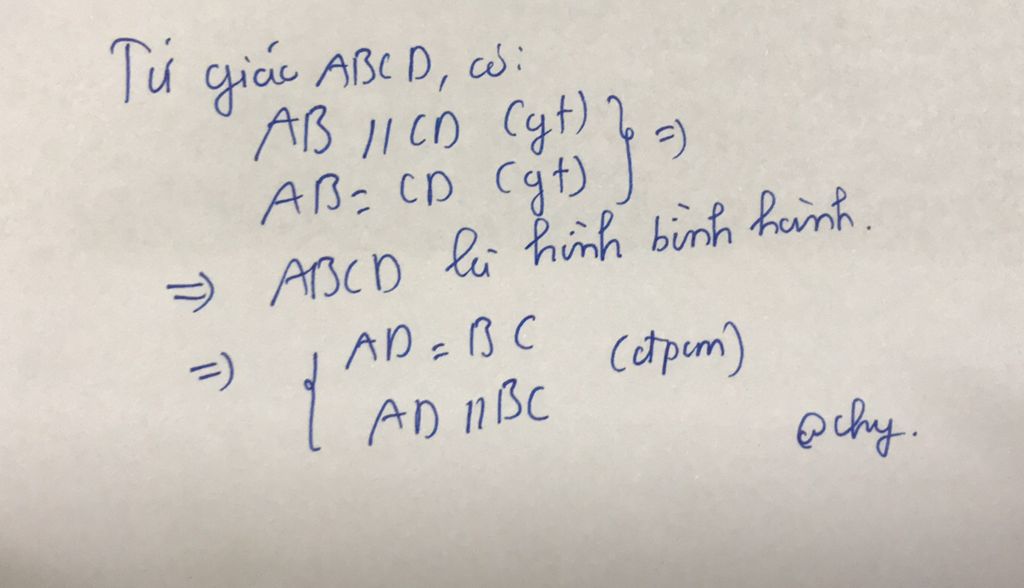 Tứ giác ABCD, có:
AB // CD (gt) } =>
AB = CD (gt)
=> ABCD là hình bình hành.
=> { AD = BC (đtpcm)
AD // BC
@chy.